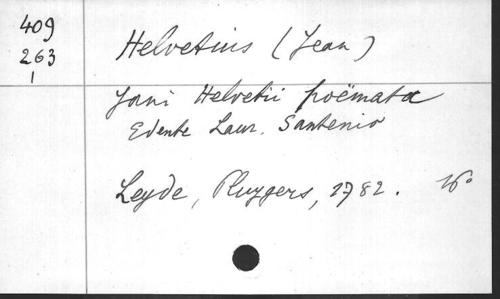 409
263
1
Helvetius (Jean)
Jani Helvetii poëmata
Edente Laur. Santenio
Leyde, Pluygers, 1782. 16°